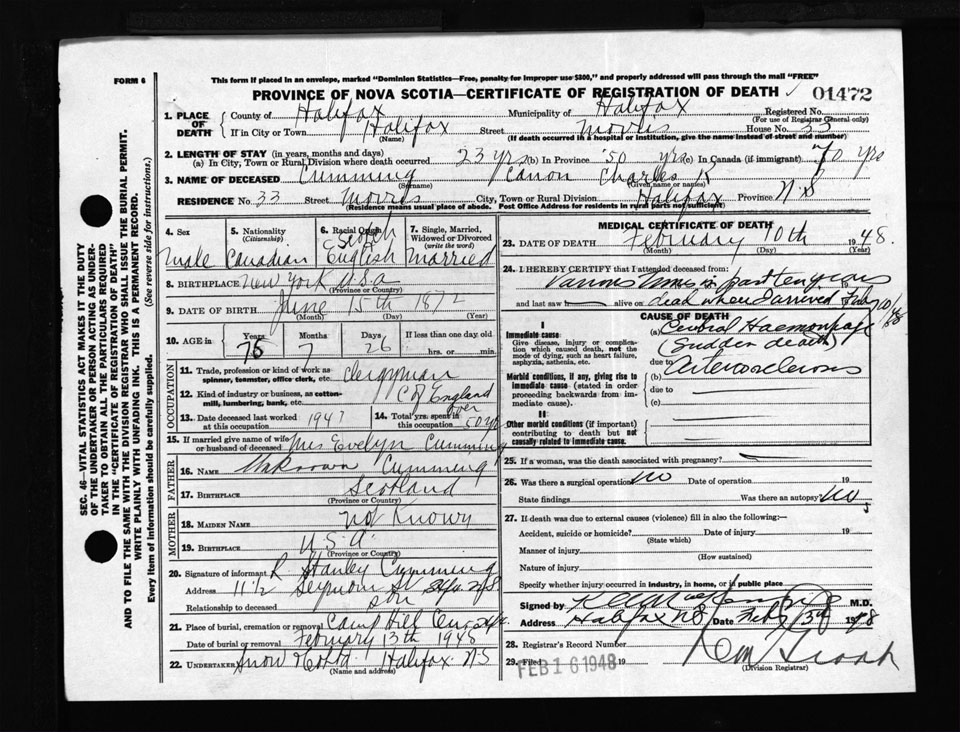 FORM 6
This form if placed in an envelope, marked "Dominion Statistics—Free, penalty for improper use $300," and properly addressed will pass through the mail "FREE"
PROVINCE OF NOVA SCOTIA—CERTIFICATE OF REGISTRATION OF DEATH 01472
1. PLACE OF DEATH
County of Halifax Municipality of Halifax Registered No.
(For use of Registrar General only)
If in City or Town Halifax Street Morris House No. 33
(Name) (If death occurred in a hospital or institution, give the name instead of street and number)
2. LENGTH OF STAY (in years, months and days)
(a) In City, Town or Rural Division where death occurred 23 yrs (b) In Province 50 yrs (c) In Canada (if immigrant) 70 yrs
3. NAME OF DECEASED Cumming Canon Charles K
(Surname) (Given name or names)
RESIDENCE No. 33 Street Morris City, Town or Rural Division Halifax Province N S
(Residence means usual place of abode. Post Office Address for residents in rural parts not sufficient)
4. Sex Male
5. Nationality (Citizenship) Canadian
6. Racial Origin Scotch English
7. Single, Married, Widowed or Divorced (write the word) Married
8. BIRTHPLACE New York U.S.a
(Province or Country)
9. DATE OF BIRTH June 15th 1872
(Month) (Day) (Year)
10. AGE in Years 75 Months 7 Days 26 If less than one day old
hrs. or min.
OCCUPATION
11. Trade, profession or kind of work as spinner, teamster, office clerk, etc. Clergyman
12. Kind of industry or business, as cotton-mill, lumbering, bank, etc. C of England
13. Date deceased last worked at this occupation 1947
14. Total yrs. spent in this occupation over 50 yrs
15. If married give name of wife or husband of deceased Mrs Evelyn Cumming
FATHER
16. NAME Unknown Cumming
17. BIRTHPLACE Scotland
(Province or Country)
MOTHER
18. MAIDEN NAME not Known
19. BIRTHPLACE U.S.A.
(Province or Country)
20. Signature of informant R Stanley Cumming
Address 11½ Seymour St Hfx. N.S.
Relationship to deceased son
21. Place of burial, cremation or removal Camp Hill
Date of burial or removal February 13th 1948
22. UNDERTAKER Snow Halifax N.S
(Name and address)
MEDICAL CERTIFICATE OF DEATH
23. DATE OF DEATH February 10th 1948.
(Month) (Day) (Year)
24. I HEREBY CERTIFY that I attended deceased from:
Various times in past ten years
and last saw h alive on dead when I arrived Feb 10/48
CAUSE OF DEATH
I
Immediate cause:
Give disease, injury or complication which caused death, not the mode of dying, such as heart failure, asphyxia, asthenia, etc.
(a) Cerebral Haemorrhage
(Sudden death)
due to
Morbid conditions, if any, giving rise to immediate cause (stated in order proceeding backwards from immediate cause).
(b) Arteriosclerosis
due to
(c)
II
Other morbid conditions (if important) contributing to death but not causally related to immediate cause.
25. If a woman, was the death associated with pregnancy?
26. Was there a surgical operation? No Date of operation 19
State findings Was there an autopsy? No
27. If death was due to external causes (violence) fill in also the following:—
Accident, suicide or homicide? Date of injury 19
(State which)
Manner of injury
(How sustained)
Nature of injury
Specify whether injury occurred in industry, in home, or in public place
Signed by M.D.
Address Halifax N.S. Date Feb 1948
28. Registrar's Record Number
29. Filed FEB 16 1948 19
(Division Registrar)
SEC. 46—VITAL STATISTICS ACT MAKES IT THE DUTY
OF THE UNDERTAKER OR PERSON ACTING AS UNDER-
TAKER TO OBTAIN ALL THE PARTICULARS REQUIRED
IN THE "CERTIFICATE OF REGISTRATION OF DEATH"
AND TO FILE THE SAME WITH THE DIVISION REGISTRAR WHO SHALL ISSUE THE BURIAL PERMIT.
WRITE PLAINLY WITH UNFADING INK. THIS IS A PERMANENT RECORD.
Every item of information should be carefully supplied. (See reverse side for instructions.)